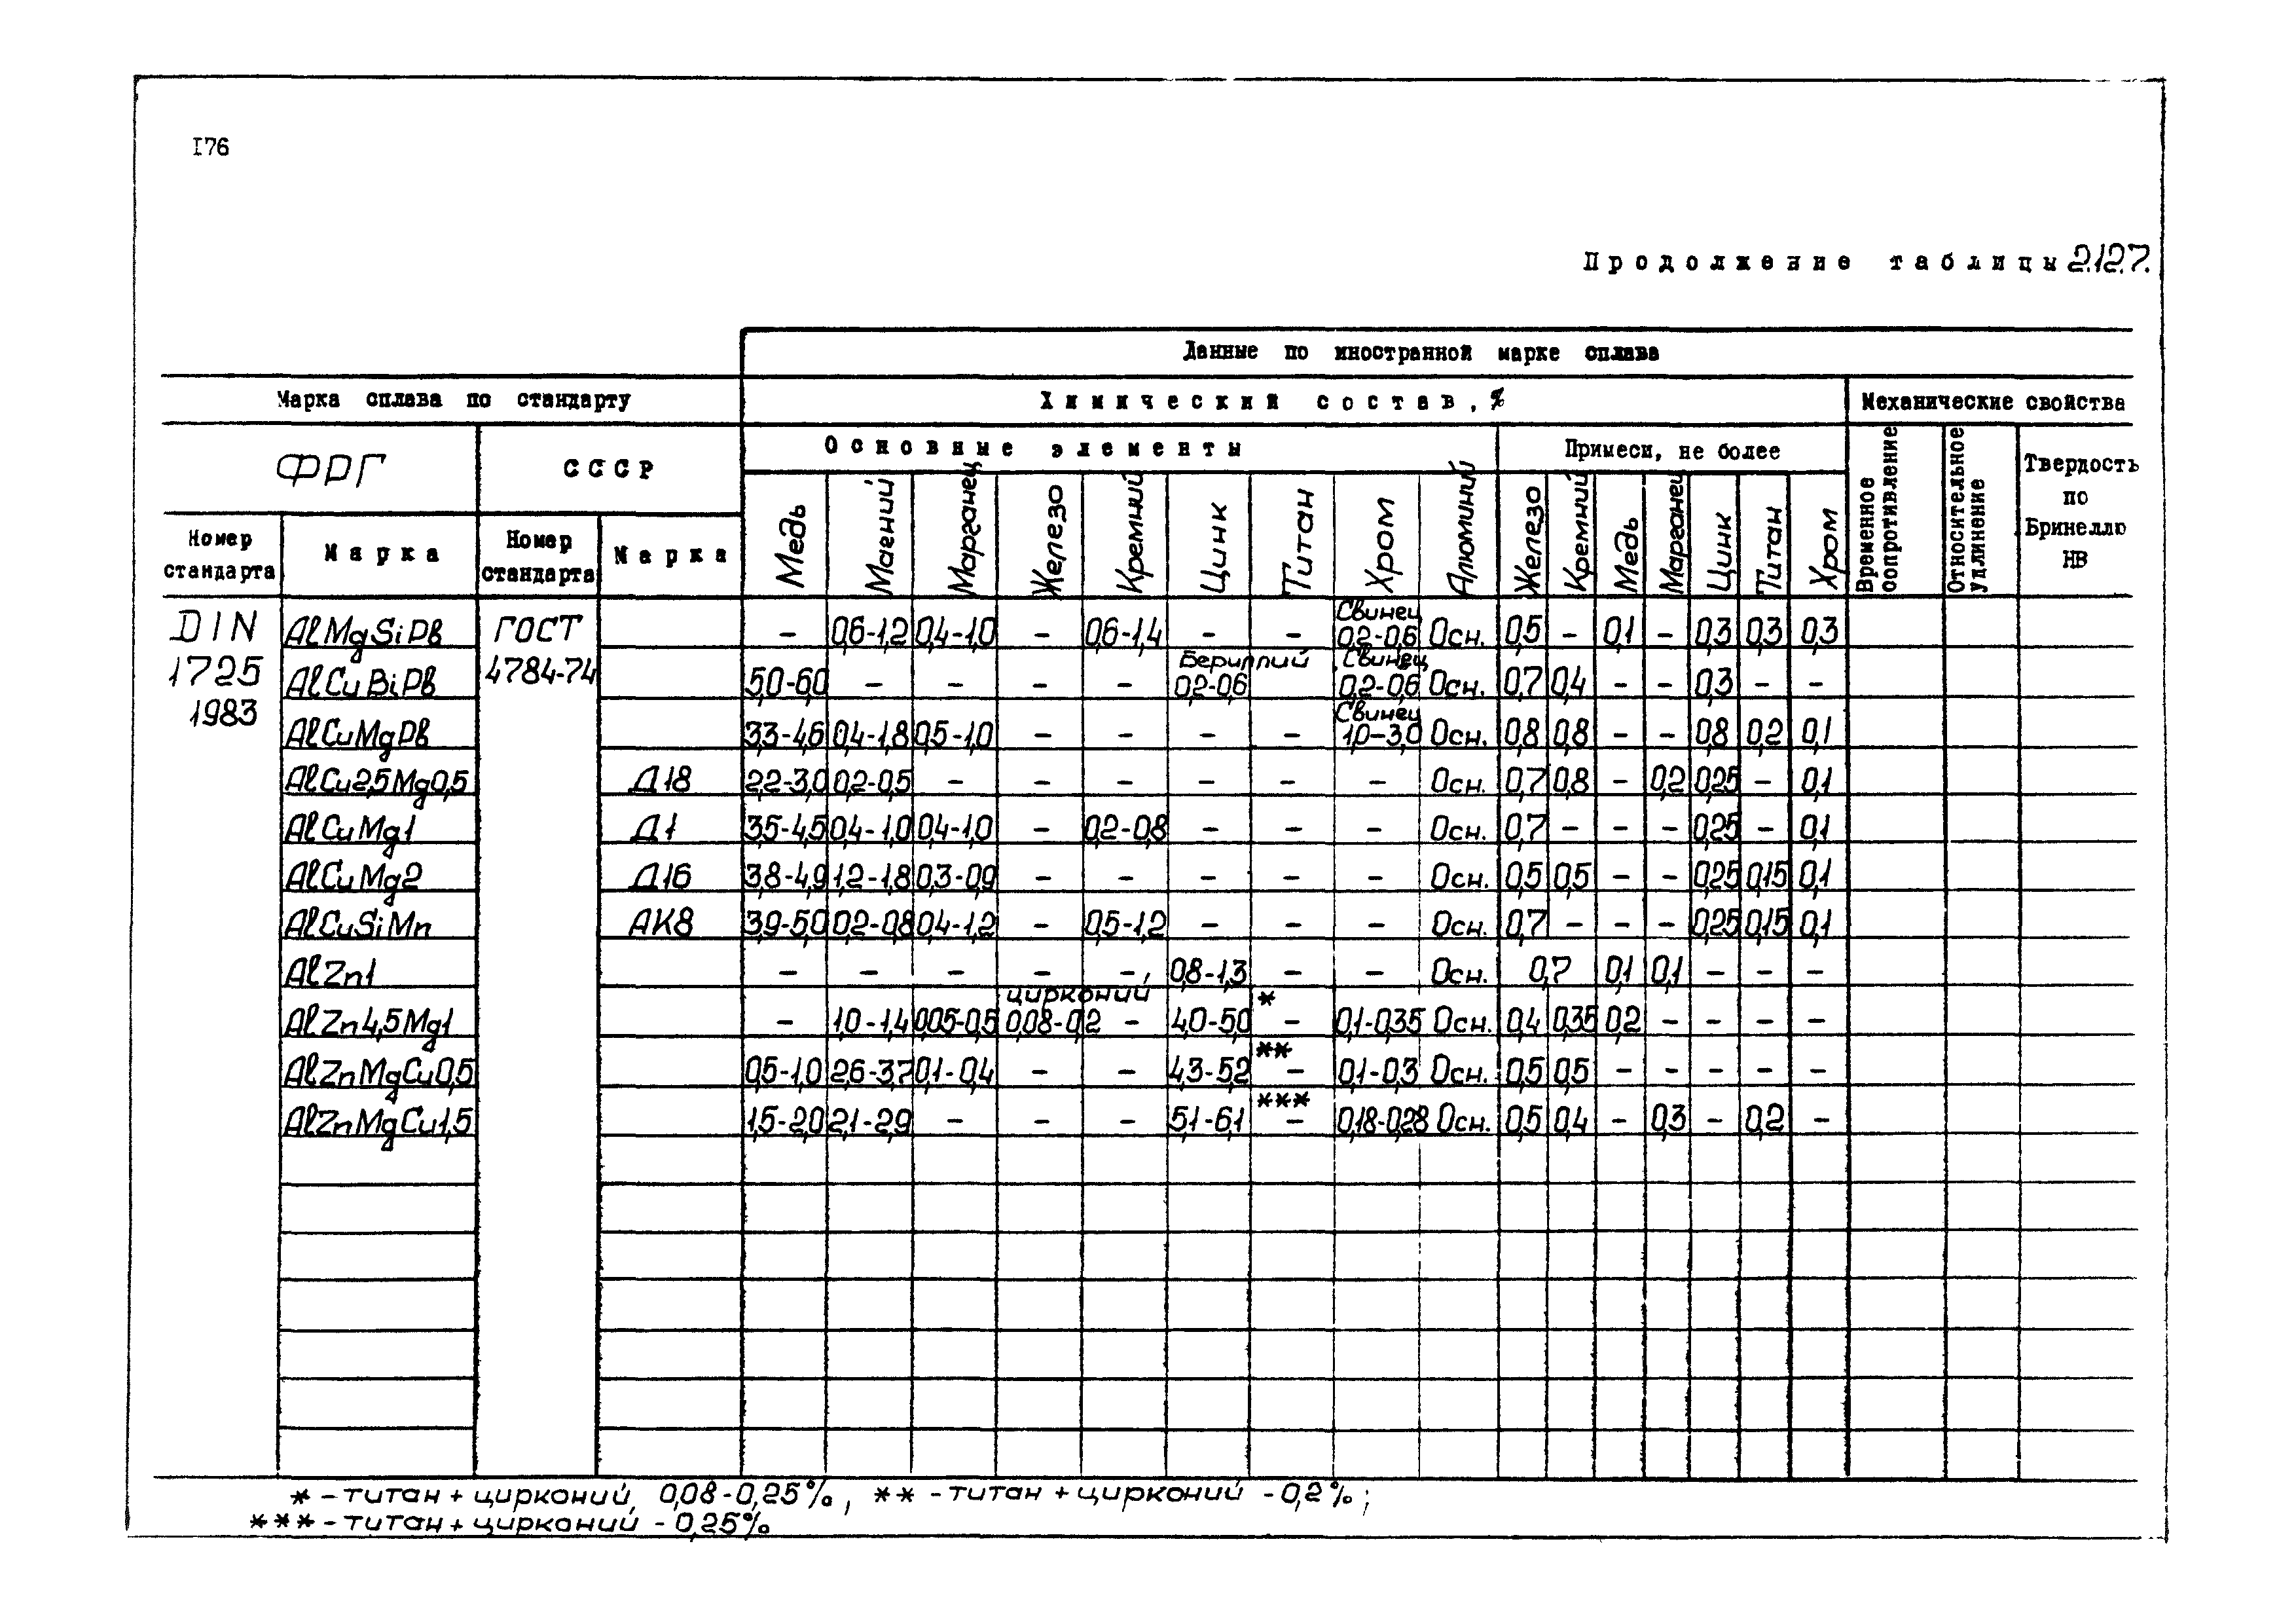 I76
Продолжение таблицы 2.12.7.
Данные по иностранной марке сплава
Марка сплава по стандарту Химический состав, % Механические свойства
ФРГ СССР Основные элементы Примеси, не более Временное сопротивление Относительное удлинение Твердость по Бринеллю НВ
Номер стандарта Марка Номер стандарта Марка Медь Магний Марганец Железо Кремний Цинк Титан Хром Алюминий Железо Кремний Медь Марганец Цинк Титан Хром
DIN 1725 1983 ГОСТ 4784-74
AlMgSiPb – 0,6-1,2 0,4-1,0 – 0,6-1,4 – – Свинец 0,2-0,6 Осн. 0,5 – 0,1 – 0,3 0,3 0,3
AlCuBiPb 5,0-6,0 – – – – Бериллий 0,2-0,6 Свинец 0,2-0,6 Осн. 0,7 0,4 – – 0,3 – –
AlCuMgPb 3,3-4,6 0,4-1,8 0,5-1,0 – – – – Свинец 1,0-3,0 Осн. 0,8 0,8 – – 0,8 0,2 0,1
AlCu2,5Mg0,5 Д18 2,2-3,0 0,2-0,5 – – – – – – Осн. 0,7 0,8 – 0,2 0,25 – 0,1
AlCuMg1 Д1 3,5-4,5 0,4-1,0 0,4-1,0 – 0,2-0,8 – – – Осн. 0,7 – – – 0,25 – 0,1
AlCuMg2 Д16 3,8-4,9 1,2-1,8 0,3-0,9 – – – – – Осн. 0,5 0,5 – – 0,25 0,15 0,1
AlCuSiMn АК8 3,9-5,0 0,2-0,8 0,4-1,2 – 0,5-1,2 – – – Осн. 0,7 – – – 0,25 0,15 0,1
AlZn1 – – – – – 0,8-1,3 – – Осн. 0,7 0,1 0,1 – – –
AlZn4,5Mg1 – 1,0-1,4 0,05-0,5 цирконий 0,08-0,2 – 4,0-5,0 * – 0,1-0,35 Осн. 0,4 0,35 0,2 – – – –
AlZnMgCu0,5 0,5-1,0 2,6-3,7 0,1-0,4 – – 4,3-5,2 ** – 0,1-0,3 Осн. 0,5 0,5 – – – – –
AlZnMgCu1,5 1,5-2,0 2,1-2,9 – – – 5,1-6,1 *** – 0,18-0,28 Осн. 0,5 0,4 – 0,3 – 0,2 –
* – титан + цирконий 0,08-0,25%, ** – титан + цирконий – 0,2%;
*** – титан + цирконий – 0,25%